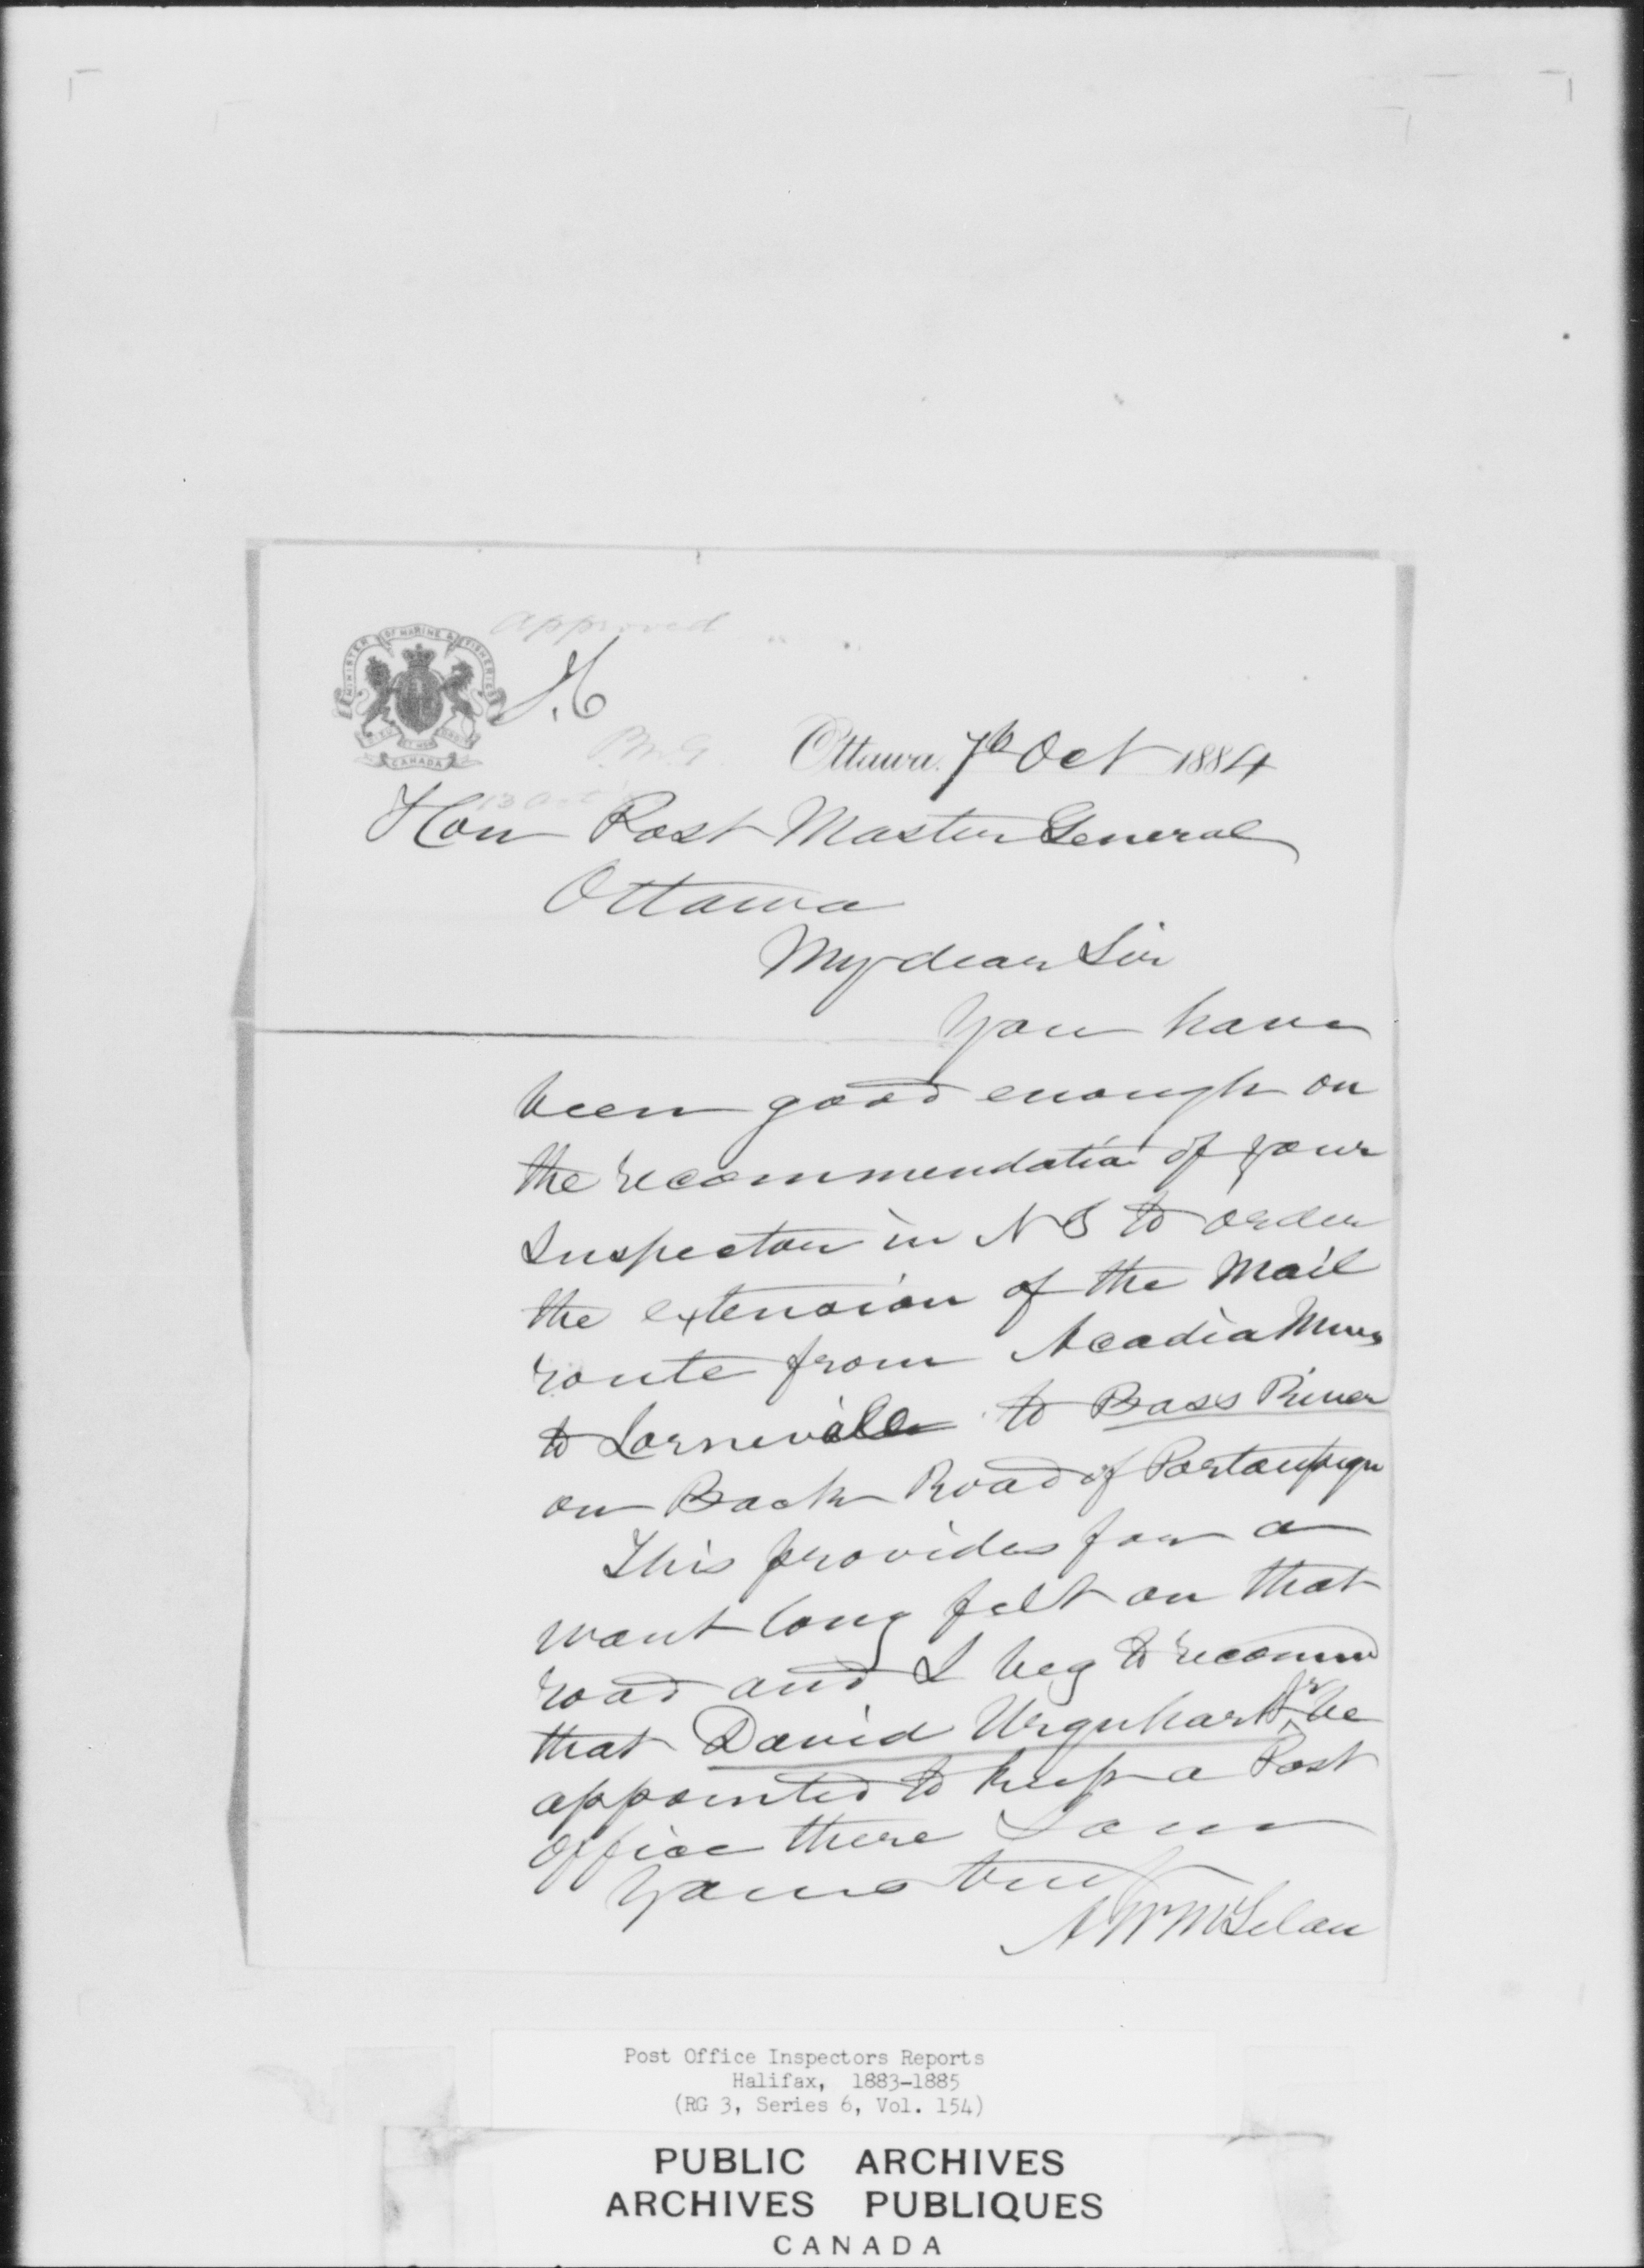 approved
MINISTER OF MARINE & FISHERIES
CANADA
J.C
P.M.G.
Ottawa, 7th Oct 1884
13 Oct
Hon Post Master General
Ottawa
My dear Sir
You have
been good enough on
the recommendation of your
Inspector in N S to order
the extension of the Mail
route from Acadia Mines
to Lorneville to Bass River
on Back Road of Portaupique
This provides for a
want long felt on that
road and I beg to recomend
that David Urquhart Jr be
appointed to keep a Post
Office there I am
Yours truly
A W McLelan
Post Office Inspectors Reports
Halifax, 1883-1885
(RG 3, Series 6, Vol. 154)
PUBLIC ARCHIVES
ARCHIVES PUBLIQUES
CANADA